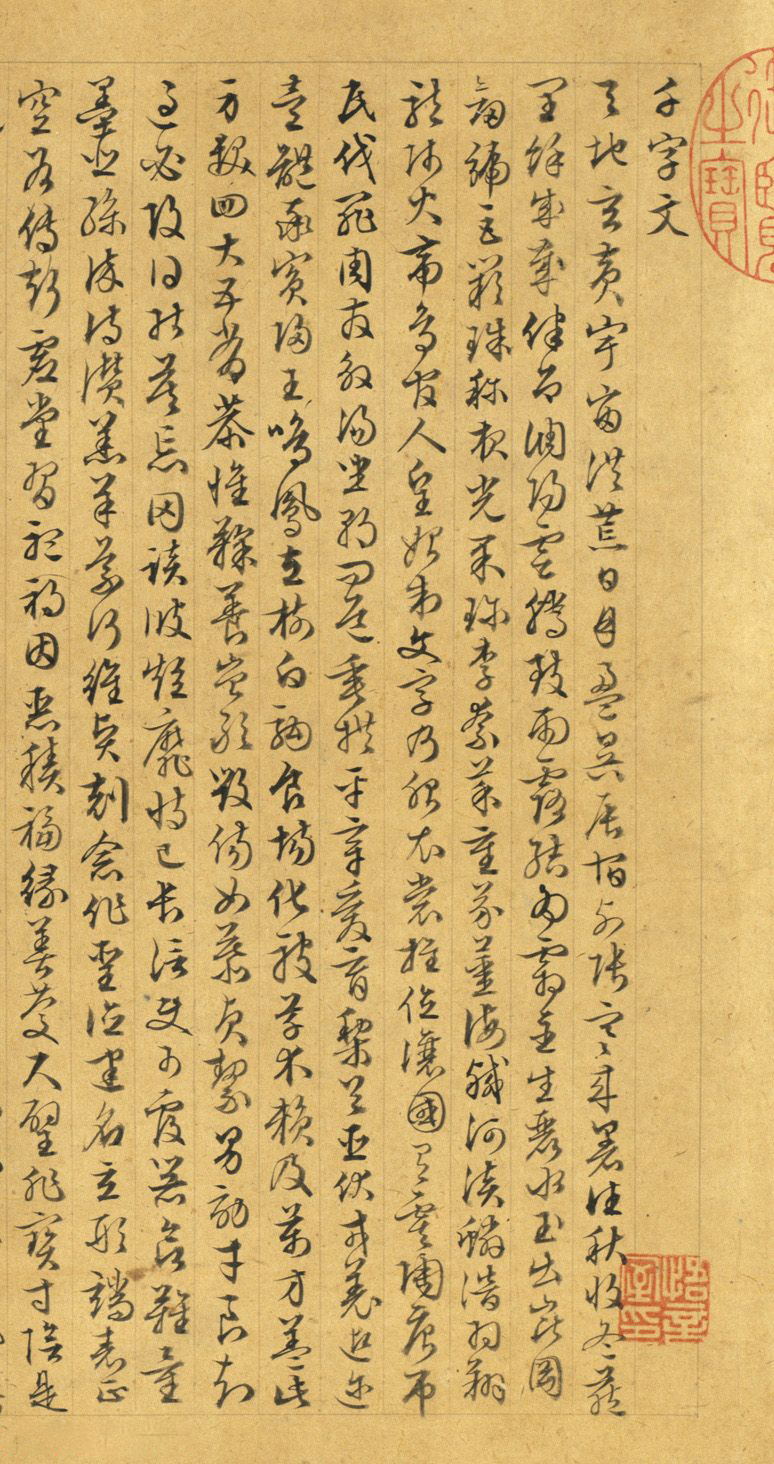 千字文
天地玄黄宇宙洪荒日月盈昃辰宿列張寒來暑往秋收冬藏
閏餘成歲律召調陽雲騰致雨露結為霜金生麗水玉出崑岡
劍號巨闕珠稱夜光果珍李柰菜重芥薑海鹹河淡鱗潛羽翔
龍師火帝鳥官人皇始制文字乃服衣裳推位讓國有虞陶唐弔
民伐罪周發殷湯坐朝問道垂拱平章愛育黎首臣伏戎羌遐邇
壹體率賓歸王鳴鳳在樹白駒食場化被草木賴及萬方蓋此
身髮四大五常恭惟鞠養豈敢毀傷女慕貞絜男效才良知
過必改得能莫忘罔談彼短靡恃己長信使可覆器欲難量
墨悲絲染詩讚羔羊景行維賢剋念作聖德建名立形端表正
空谷傳聲虛堂習聽禍因惡積福緣善慶尺璧非寶寸陰是